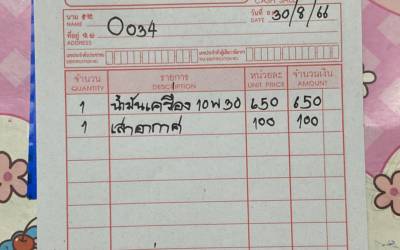 CASH SALE
นาม
NAME 0034
วันที่
DATE 30/8/66
ที่อยู่
ADDRESS
จำนวน รายการ หน่วยละ จำนวนเงิน
QUANTITY DESCRIPTION UNIT PRICE AMOUNT
1 น้ำมันเครื่อง 10W30 650 650
1 เสาอากาศ 100 100